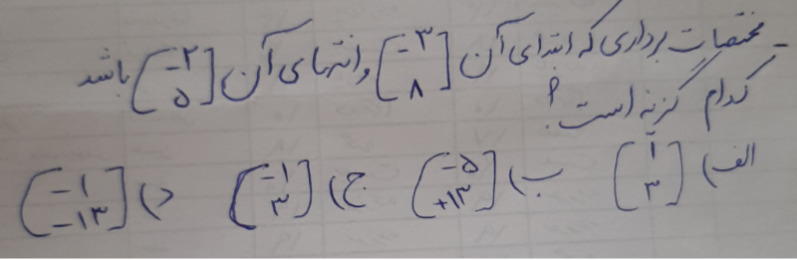 - مختصات برداری که ابتدای آن [-۳ ۸] و انتهای آن [-۲ ۵] باشد
کدام گزینه است؟
الف) [۱ ۳] ب) [-۵ +۱۳] ج) [-۱ ۳] د) [-۱ -۱۳]